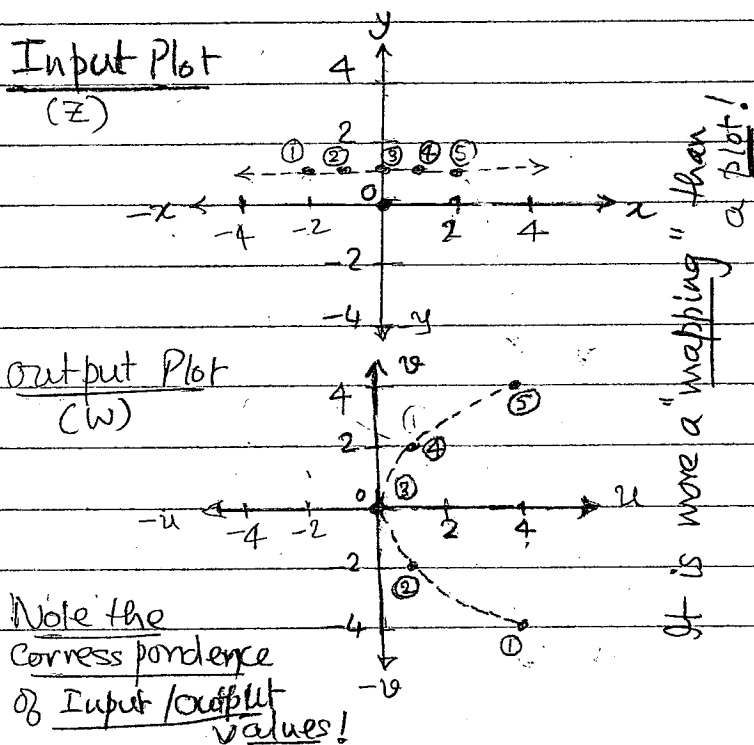 Input Plot
(Z)
y
4
2
① ② ③ ④ ⑤
0
-x x
-4 -2 2 4
-2
-4 -y
output Plot
(W)
v
4
⑤
2 ① ④
0 ③
-u u
-4 -2 2 4
2
②
-4
①
-v
Note the
correspondence
of Input/output
values!
It is more a "mapping" than
a plot!